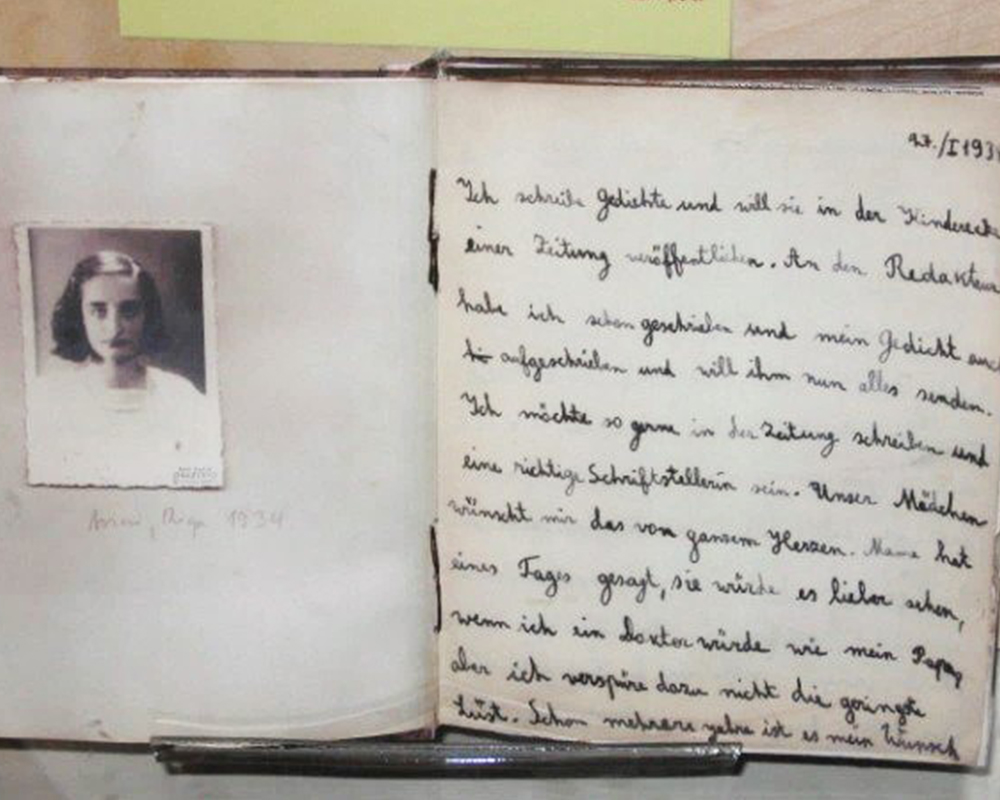 Riga 1934
/I 193
Ich schreibe Gedichte und will sie in der Kinderecke
einer Zeitung veröffentlichen. An den Redakteur
habe ich schon geschrieben und mein Gedicht auch
aufgeschrieben und will ihm nun alles senden.
Ich möchte so gerne in der Zeitung schreiben und
eine richtige Schriftstellerin sein. Unser Mädchen
wünscht mir das vom ganzem Herzen. Mama hat
eines Tages gesagt, sie würde es lieber sehen,
wenn ich ein Doktor würde wie mein Papa,
aber ich verspüre dazu nicht die geringste
Lust. Schon mehrere yahre ist es mein Wunsch